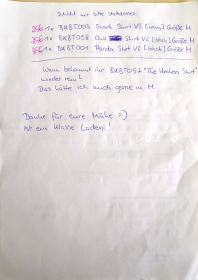 Schickt mir bitte stattdessen:
1x BKBT003 Shark Shirt V2 [navy] Größe M
1x BKBT058 Owl Shirt V2 [black] Größe M
1x BKBT001 Panda Shirt [black] Größe M
Wann bekommt ihr BKBT057 "The Union Shirt"
wieder rein?
Das hätte ich auch gerne in M.
Danke für eure Mühe =)
Ist ein klasse Laden!